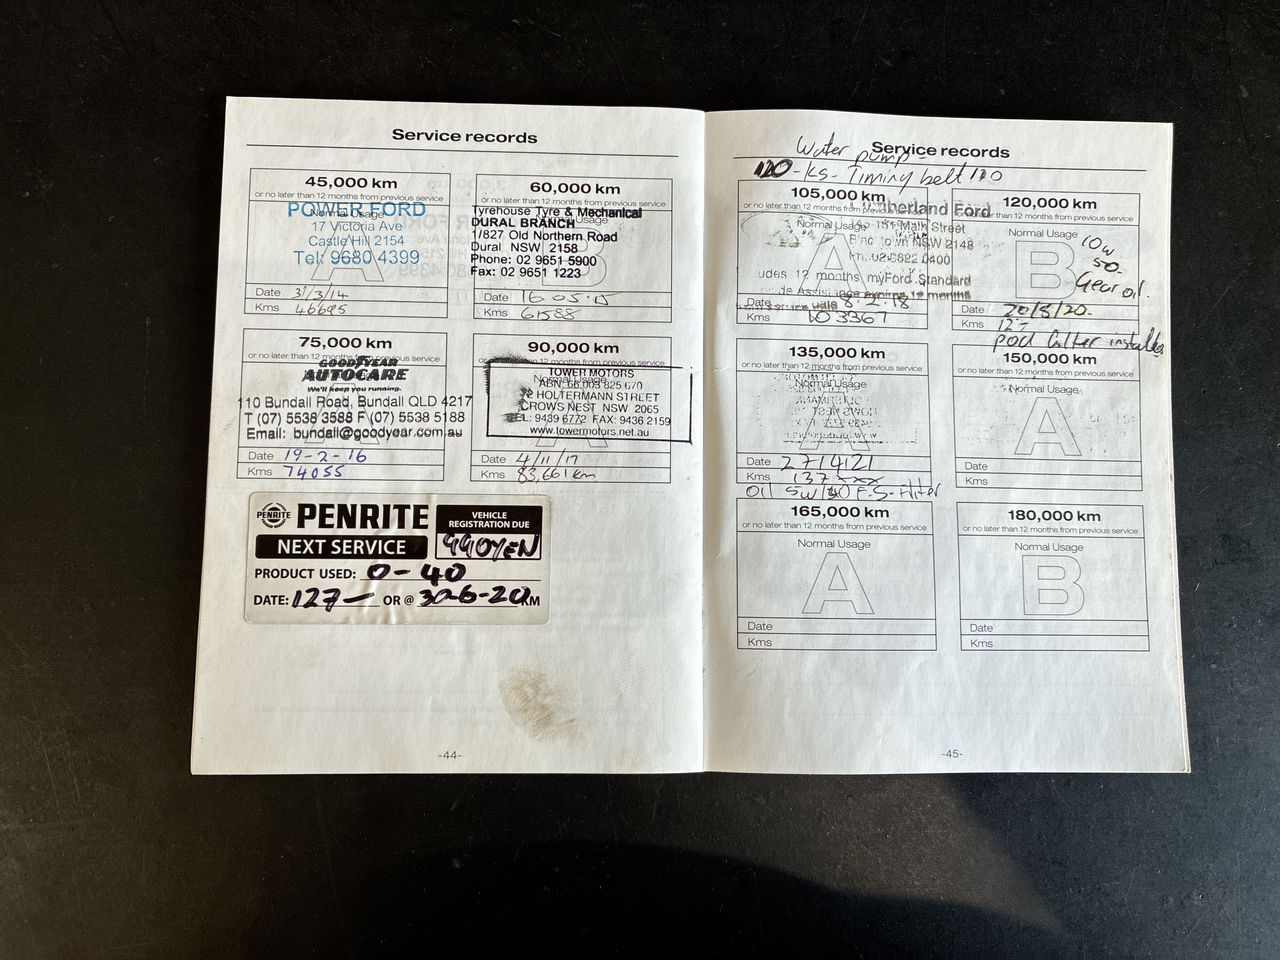 Service records
45,000 km
or no later than 12 months from previous service
Normal Usage
POWER FORD
17 Victoria Ave
Castle Hill 2154
Tel: 9680 4399
A
Date 31/3/14
Kms 46695
60,000 km
or no later than 12 months from previous service
Tyrehouse Tyre & Mechanical
DURAL BRANCH
1/827 Old Northern Road
Dural NSW 2158
Phone: 02 9651 5900
Fax: 02 9651 1223
B
Date 16 05 15
Kms 61588
75,000 km
or no later than 12 months from previous service
GOODYEAR
AUTOCARE
We'll keep you running.
110 Bundall Road, Bundall QLD 4217
T (07) 5538 3588 F (07) 5538 5188
Email: bundall@goodyear.com.au
Date 19-2-16
Kms 74055
90,000 km
or no later than 12 months from previous service
Normal Usage
TOWER MOTORS
ABN: 66 003 825 670
72 HOLTERMANN STREET
CROWS NEST NSW 2065
TEL: 9439 6772 FAX: 9436 2159
www.towermotors.net.au
Date 4/11/17
Kms 83,661km
PENRITE
PENRITE
NEXT SERVICE
VEHICLE
REGISTRATION DUE
990YEN
PRODUCT USED: 0-40
DATE: 127- OR @ 30-6-20 KM
-44-
Service records
Water pump -
120-Ks- Timing belt 120
105,000 km
or no later than 12 months from previous service
Normal Usage
Ford
151 Main Street
NSW 2148
Ph. 02 9822 0400
12 months myFord Standard
A
Date 8.2.18
Kms 103367
120,000 km
or no later than 12 months from previous service
Normal Usage
B
10w
50-
Gear oil.
Date 20/5/20.
Kms 127-
pod filter installed
135,000 km
or no later than 12 months from previous service
Normal Usage
Date 27/4/21
Kms 137xxx
Oil 5w/30 F.S-Filter
150,000 km
or no later than 12 months from previous service
Normal Usage
A
Date
Kms
165,000 km
or no later than 12 months from previous service
Normal Usage
A
Date
Kms
180,000 km
or no later than 12 months from previous service
Normal Usage
B
Date
Kms
-45-